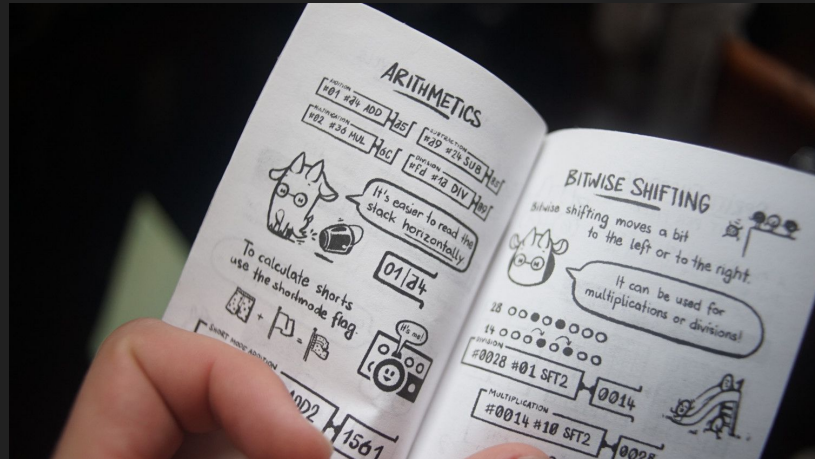 ARITHMETICS
ADDITION
#01 #a4 ADD a5
MULTIPLICATION
#02 #36 MUL 6C
SUBTRACTION
#a9 #24 SUB
DIVISION
#fd #1a DIV 09
It's easier to read the
stack horizontally
01/a4
To calculate shorts
use the shortmode flag.
It's me!
SHORT MODE ADDITION
ADD2 1561
BITWISE SHIFTING
Bitwise shifting moves a bit
to the left or to the right.
It can be used for
multiplications or divisions!
28
14
DIVISION
#0028 #01 SFT2 0014
MULTIPLICATION
#0014 #10 SFT2 0028